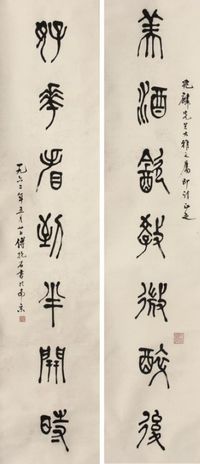 先生大雅之屬即請正之
美酒飲教微醉後
好花看到半開時
年五月廿日傅抱石書於南京